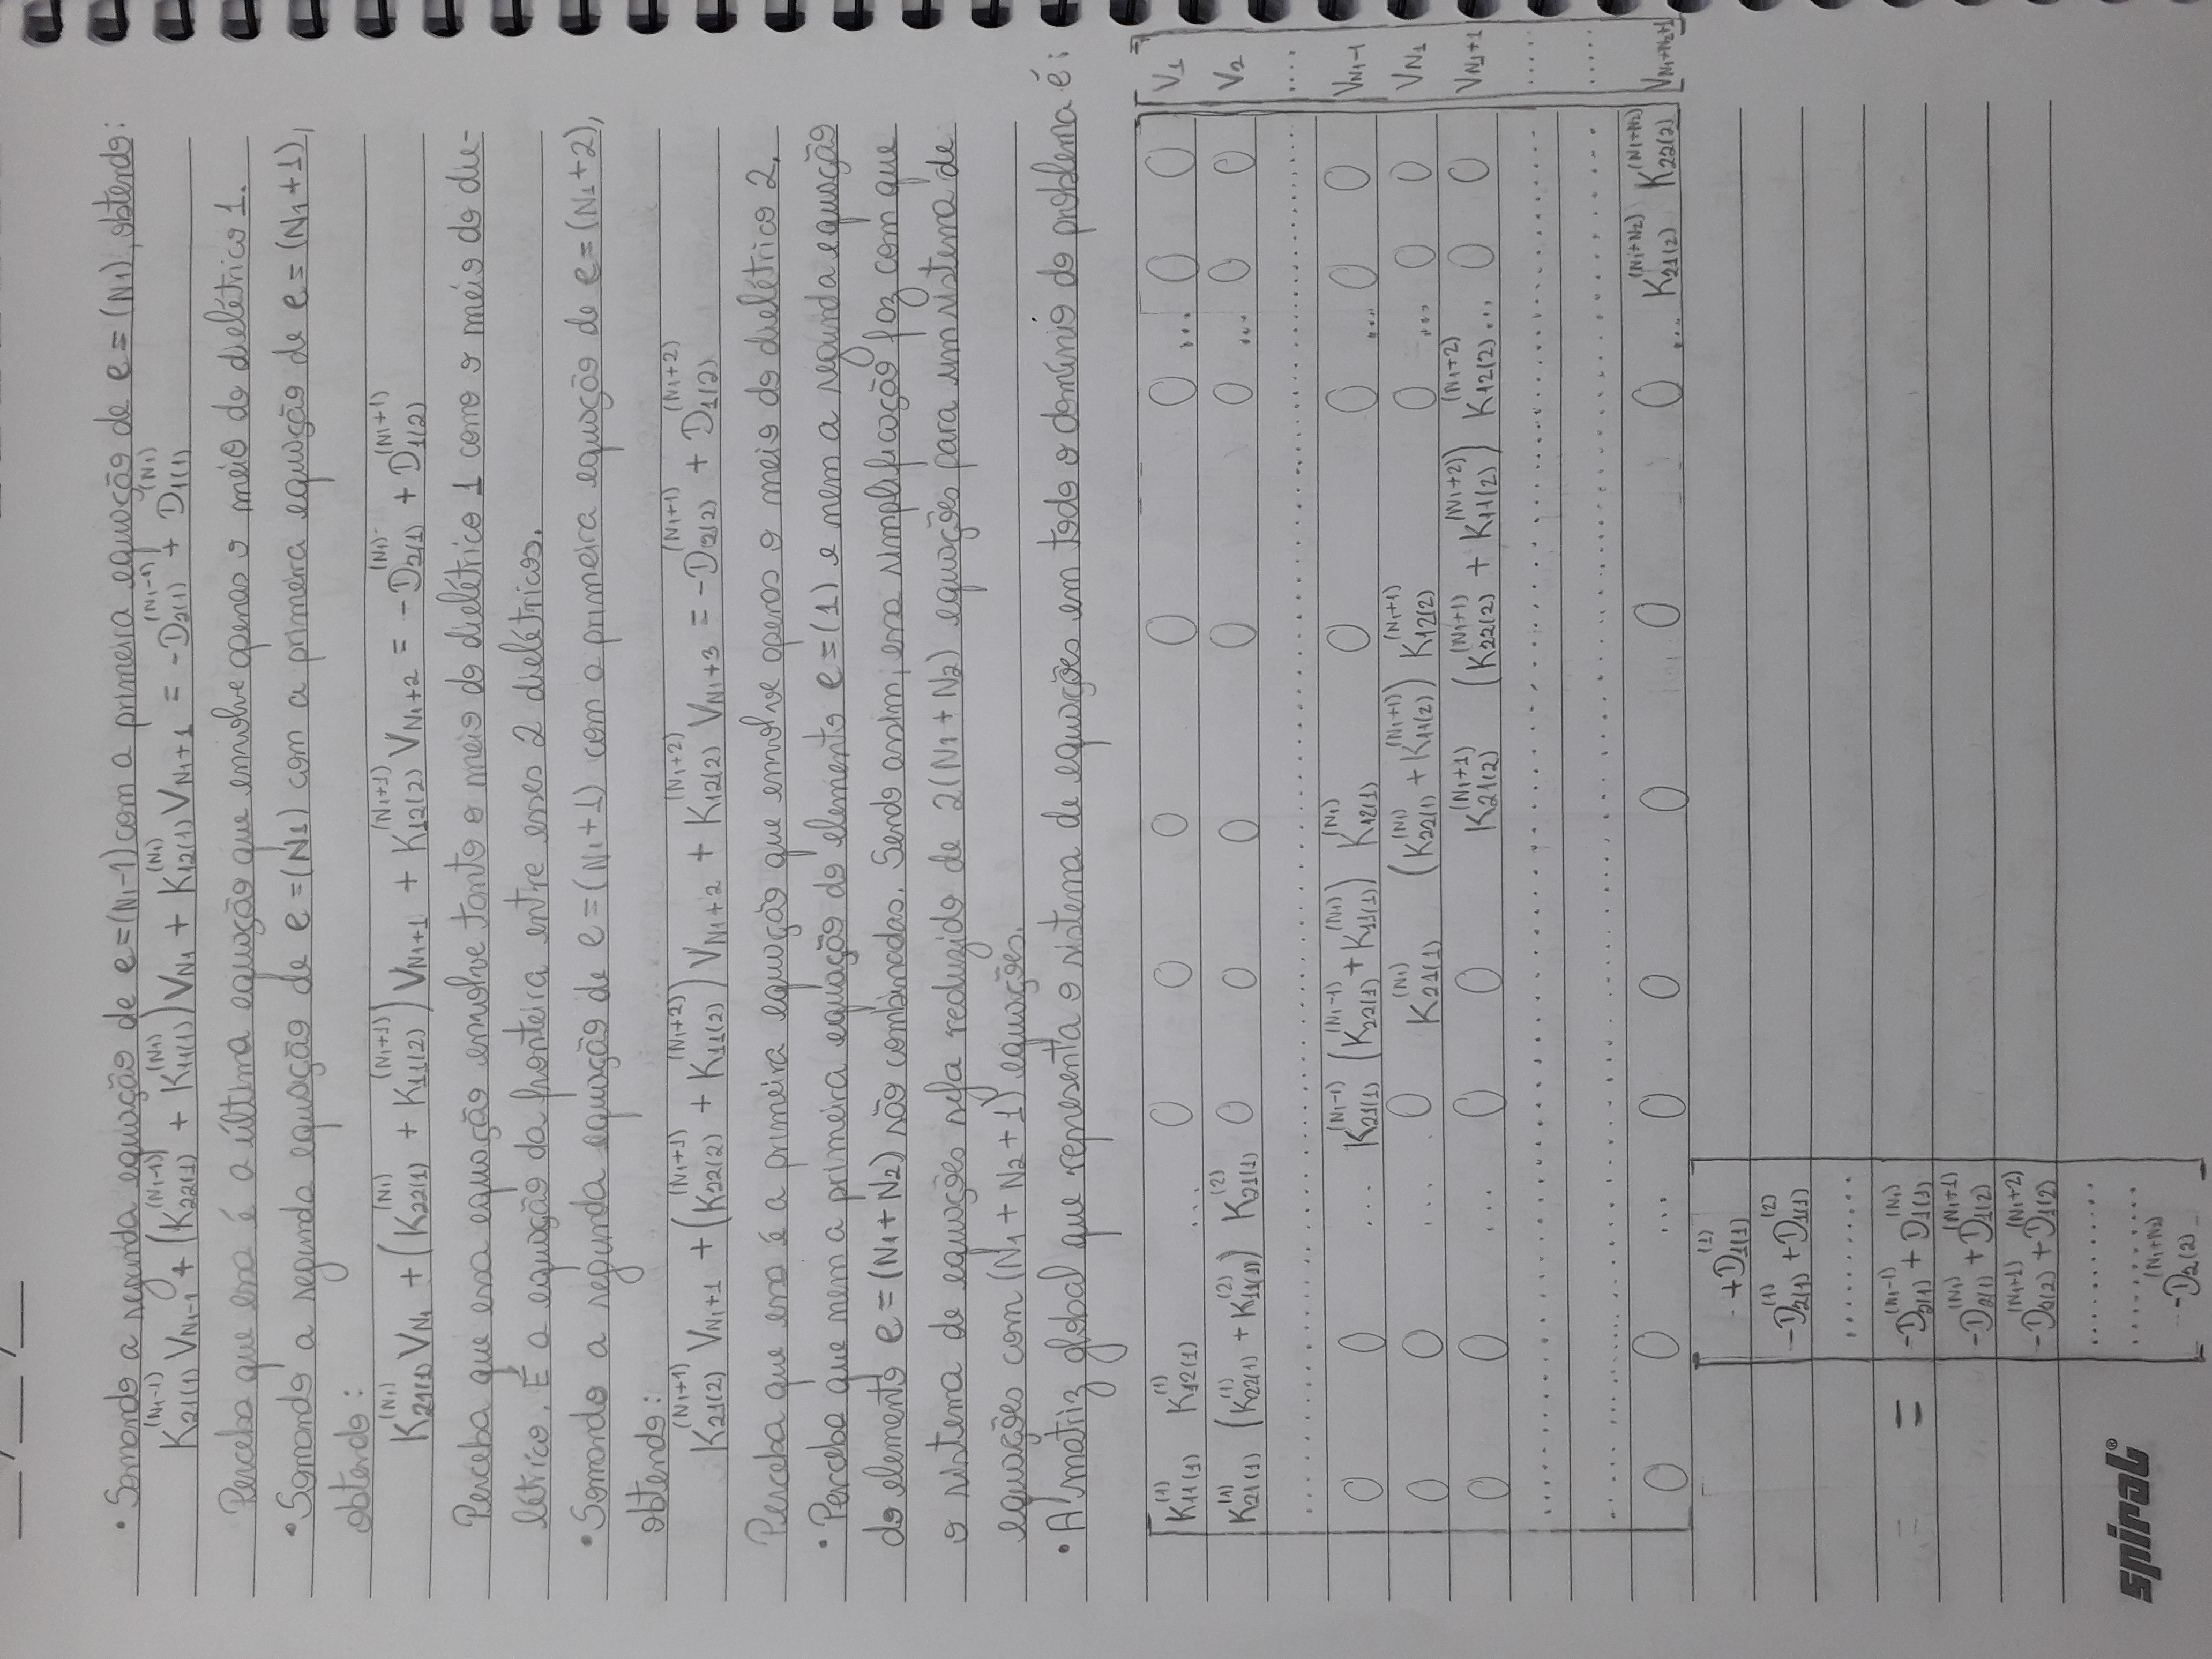 ___/___/___
• Somando a segunda equação de e=(N₁-1) com a primeira equação de e=(N₁), obtendo:
K₂₁₍₁₎^(N₁-1) V_N₁-1 + (K₂₂₍₁₎^(N₁-1) + K₁₁₍₁₎^(N₁)) V_N₁ + K₁₂₍₁₎^(N₁) V_N₁+1 = -D₂₍₁₎^(N₁-1) + D₁₍₁₎^(N₁)
Perceba que essa é a última equação que envolve apenas o meio do dielétrico 1.
• Somando a segunda equação de e=(N₁) com a primeira equação de e=(N₁+1),
obtendo:
K₂₁₍₁₎^(N₁) V_N₁ + (K₂₂₍₁₎^(N₁) + K₁₁₍₂₎^(N₁+1)) V_N₁+1 + K₁₂₍₂₎^(N₁+1) V_N₁+2 = -D₂₍₁₎^(N₁) + D₁₍₂₎^(N₁+1)
Perceba que essa equação envolve tanto o meio do dielétrico 1 como o meio do die-
létrico. É a equação da fronteira entre esses 2 dielétricos.
• Somando a segunda equação de e=(N₁+1) com a primeira equação de e=(N₁+2),
obtendo:
K₂₁₍₂₎^(N₁+1) V_N₁+1 + (K₂₂₍₂₎^(N₁+1) + K₁₁₍₂₎^(N₁+2)) V_N₁+2 + K₁₂₍₂₎^(N₁+2) V_N₁+3 = -D₂₍₂₎^(N₁+1) + D₁₍₂₎^(N₁+2)
Perceba que essa é a primeira equação que envolve apenas o meio do dielétrico 2.
• Perceba que nem a primeira equação do elemento e=(1) e nem a segunda equação
do elemento e=(N₁+N₂) são combinadas. Sendo assim, essa simplificação faz com que
o sistema de equações seja reduzido de 2(N₁+N₂) equações para um sistema de
equações com (N₁+N₂+1) equações.
• A matriz global que representa o sistema de equações em todo o domínio do problema é:
K₁₁₍₁₎^(1) K₁₂₍₁₎^(1) ... 0 0 0 0 0 ... 0 0 V₁
K₂₁₍₁₎^(1) (K₂₂₍₁₎^(1) + K₁₁₍₁₎^(2)) K₂₁₍₁₎^(2) 0 0 0 0 0 ... 0 0 V₂
.................... ....
0 0 ... K₂₁₍₁₎^(N₁-1) (K₂₂₍₁₎^(N₁-1) + K₁₁₍₁₎^(N₁)) K₁₂₍₁₎^(N₁) 0 0 ... 0 0 V_N₁-1
0 0 ... 0 K₂₁₍₁₎^(N₁) (K₂₂₍₁₎^(N₁) + K₁₁₍₂₎^(N₁+1)) K₁₂₍₂₎^(N₁+1) 0 ... 0 0 V_N₁
0 0 ... 0 0 K₂₁₍₂₎^(N₁+1) (K₂₂₍₂₎^(N₁+1) + K₁₁₍₂₎^(N₁+2)) K₁₂₍₂₎^(N₁+2) ... 0 0 V_N₁+1
.................... .....
.................... .....
0 0 ... 0 0 0 0 0 ... K₂₁₍₂₎^(N₁+N₂) K₂₂₍₂₎^(N₁+N₂) V_N₁+N₂+1
+D₁₍₁₎^(1)
-D₂₍₁₎^(1) + D₁₍₁₎^(2)
...........
= -D₂₍₁₎^(N₁-1) + D₁₍₁₎^(N₁)
-D₂₍₁₎^(N₁) + D₁₍₂₎^(N₁+1)
-D₂₍₂₎^(N₁+1) + D₁₍₂₎^(N₁+2)
............
............
-D₂₍₂₎^(N₁+N₂)
spiral®